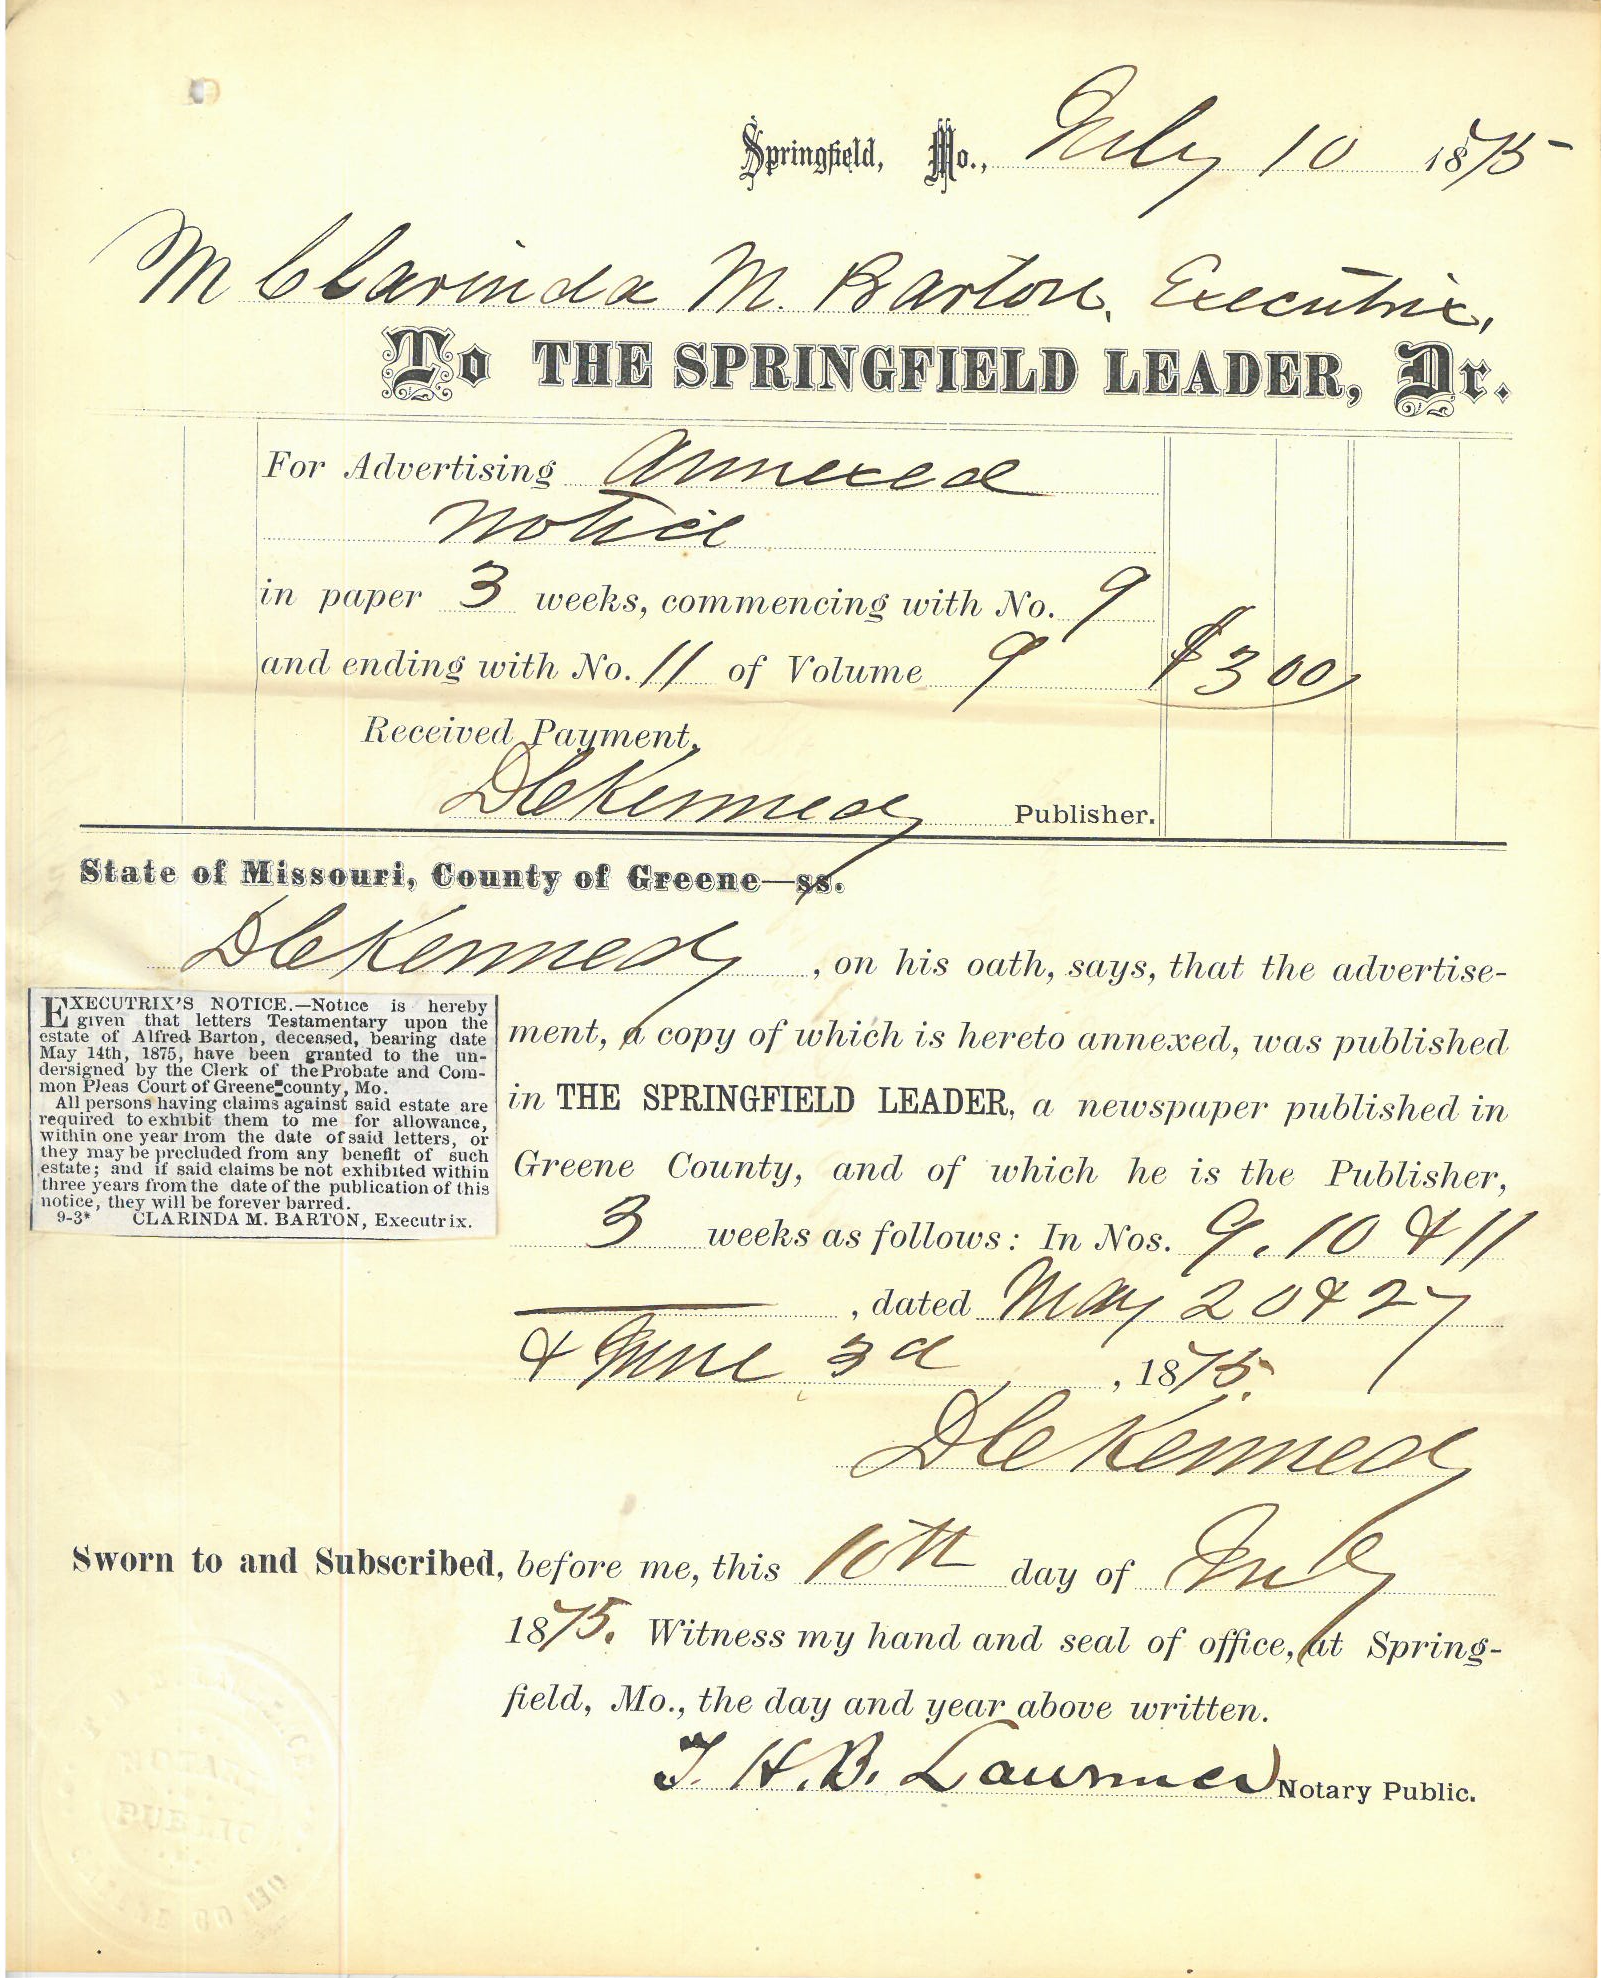 Springfield, Mo., July 10 1875
M Clarinda M. Barton, Executrix,
To THE SPRINGFIELD LEADER, Dr.
For Advertising annexed
notice
in paper 3 weeks, commencing with No. 9
and ending with No. 11 of Volume 9 $3 00
Received Payment,
D C Kennedy Publisher.
State of Missouri, County of Greene—ss.
D C Kennedy, on his oath, says, that the advertise-
ment, a copy of which is hereto annexed, was published
in THE SPRINGFIELD LEADER, a newspaper published in
Greene County, and of which he is the Publisher,
3 weeks as follows: In Nos. 9, 10 & 11
, dated May 20 & 27
& June 3d, 1875.
D C Kennedy
EXECUTRIX'S NOTICE.—Notice is hereby
given that letters Testamentary upon the
estate of Alfred Barton, deceased, bearing date
May 14th, 1875, have been granted to the un-
dersigned by the Clerk of the Probate and Com-
mon Pleas Court of Greene county, Mo.
All persons having claims against said estate are
required to exhibit them to me for allowance,
within one year from the date of said letters, or
they may be precluded from any benefit of such
estate; and if said claims be not exhibited within
three years from the date of the publication of this
notice, they will be forever barred.
9-3* CLARINDA M. BARTON, Executrix.
Sworn to and Subscribed, before me, this 10th day of July
1875. Witness my hand and seal of office, at Spring-
field, Mo., the day and year above written.
T. H. B. Lawrence Notary Public.